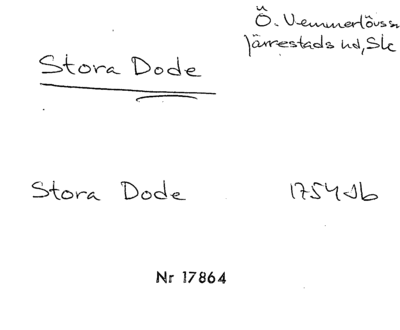 Ö. Vemmerlövs sn
Järrestads hd, Sk
Stora Dode
Stora Dode 1754 Jb
Nr 17864